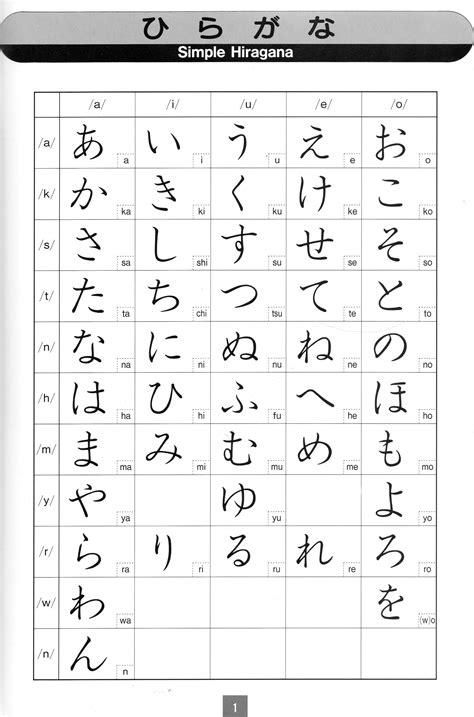 ひらがな
Simple Hiragana
/a/ /i/ /u/ /e/ /o/
/a/ あ a い i う u え e お o
/k/ か ka き ki く ku け ke こ ko
/s/ さ sa し shi す su せ se そ so
/t/ た ta ち chi つ tsu て te と to
/n/ な na に ni ぬ nu ね ne の no
/h/ は ha ひ hi ふ fu へ he ほ ho
/m/ ま ma み mi む mu め me も mo
/y/ や ya ゆ yu よ yo
/r/ ら ra り ri る ru れ re ろ ro
/w/ わ wa を (w)o
/n/ ん n
1